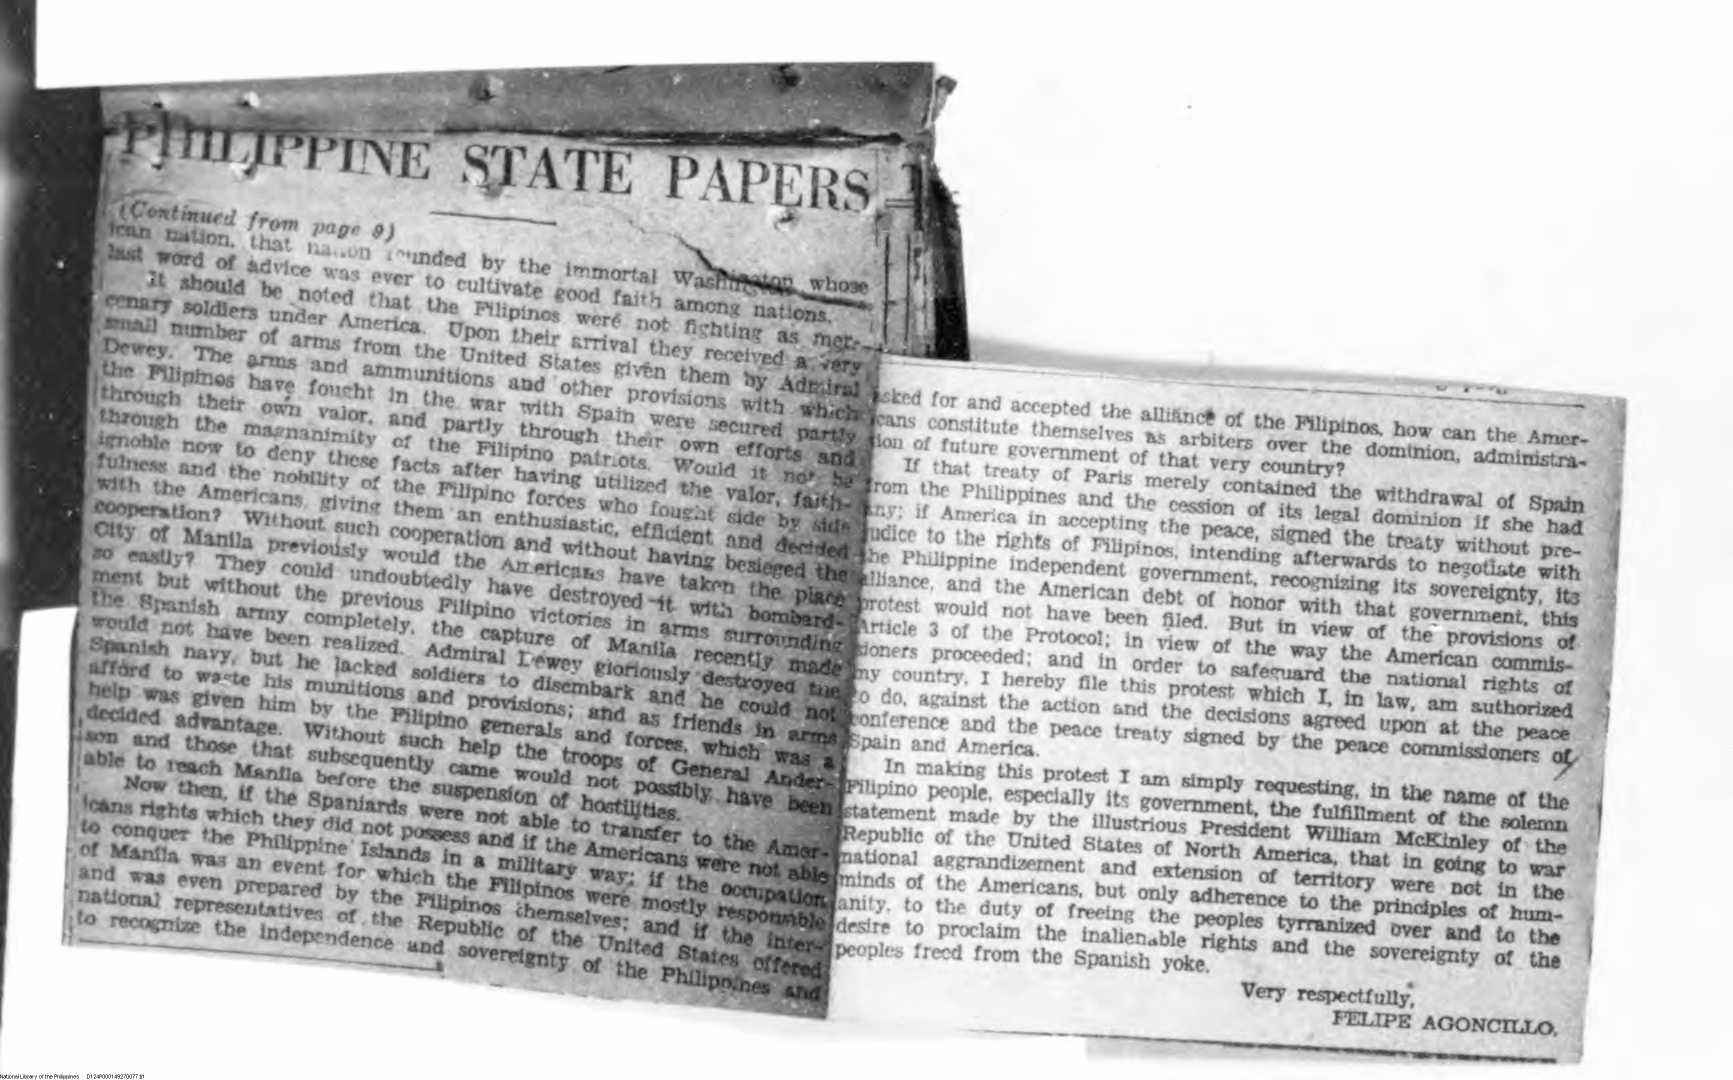 PHILIPPINE STATE PAPERS
(Continued from page 9)
ican nation, that nation founded by the immortal Washington whose
last word of advice was ever to cultivate good faith among nations.
It should be noted that the Filipinos were not fighting as mer-
cenary soldiers under America. Upon their arrival they received a very
small number of arms from the United States given them by Admiral
Dewey. The arms and ammunitions and other provisions with which
the Filipinos have fought in the war with Spain were secured partly
through their own valor, and partly through their own efforts and
through the magnanimity of the Filipino patriots. Would it not be
ignoble now to deny these facts after having utilized the valor, faith-
fulness and the nobility of the Filipino forces who fought side by side
with the Americans, giving them an enthusiastic, efficient and decided
cooperation? Without such cooperation and without having besieged the
City of Manila previously would the Americans have taken the place
so easily? They could undoubtedly have destroyed it with bombard-
ment but without the previous Filipino victories in arms surrounding
the Spanish army completely, the capture of Manila recently made
would not have been realized. Admiral Dewey gloriously destroyed the
Spanish navy, but he lacked soldiers to disembark and he could not
afford to waste his munitions and provisions; and as friends in arms
help was given him by the Filipino generals and forces, which was a
decided advantage. Without such help the troops of General Ander-
son and those that subsequently came would not possibly have been
able to reach Manila before the suspension of hostilities.
Now then, if the Spaniards were not able to transfer to the Amer-
icans rights which they did not possess and if the Americans were not able
to conquer the Philippine Islands in a military way; if the occupation
of Manila was an event for which the Filipinos were mostly responsible
and was even prepared by the Filipinos themselves; and if the inter-
national representatives of the Republic of the United States offered
to recognize the independence and sovereignty of the Philippines and
asked for and accepted the alliance of the Filipinos, how can the Amer-
icans constitute themselves as arbiters over the dominion, administra-
tion of future government of that very country?
If that treaty of Paris merely contained the withdrawal of Spain
from the Philippines and the cession of its legal dominion if she had
any; if America in accepting the peace, signed the treaty without pre-
judice to the rights of Filipinos, intending afterwards to negotiate with
the Philippine independent government, recognizing its sovereignty, its
alliance, and the American debt of honor with that government, this
protest would not have been filed. But in view of the provisions of
Article 3 of the Protocol; in view of the way the American commis-
sioners proceeded; and in order to safeguard the national rights of
my country, I hereby file this protest which I, in law, am authorized
to do, against the action and the decisions agreed upon at the peace
conference and the peace treaty signed by the peace commissioners of
Spain and America.
In making this protest I am simply requesting, in the name of the
Filipino people, especially its government, the fulfillment of the solemn
statement made by the illustrious President William McKinley of the
Republic of the United States of North America, that in going to war
national aggrandizement and extension of territory were not in the
minds of the Americans, but only adherence to the principles of hum-
anity, to the duty of freeing the peoples tyrranized over and to the
desire to proclaim the inalienable rights and the sovereignty of the
peoples freed from the Spanish yoke.
Very respectfully,
FELIPE AGONCILLO.
National Library of the Philippines